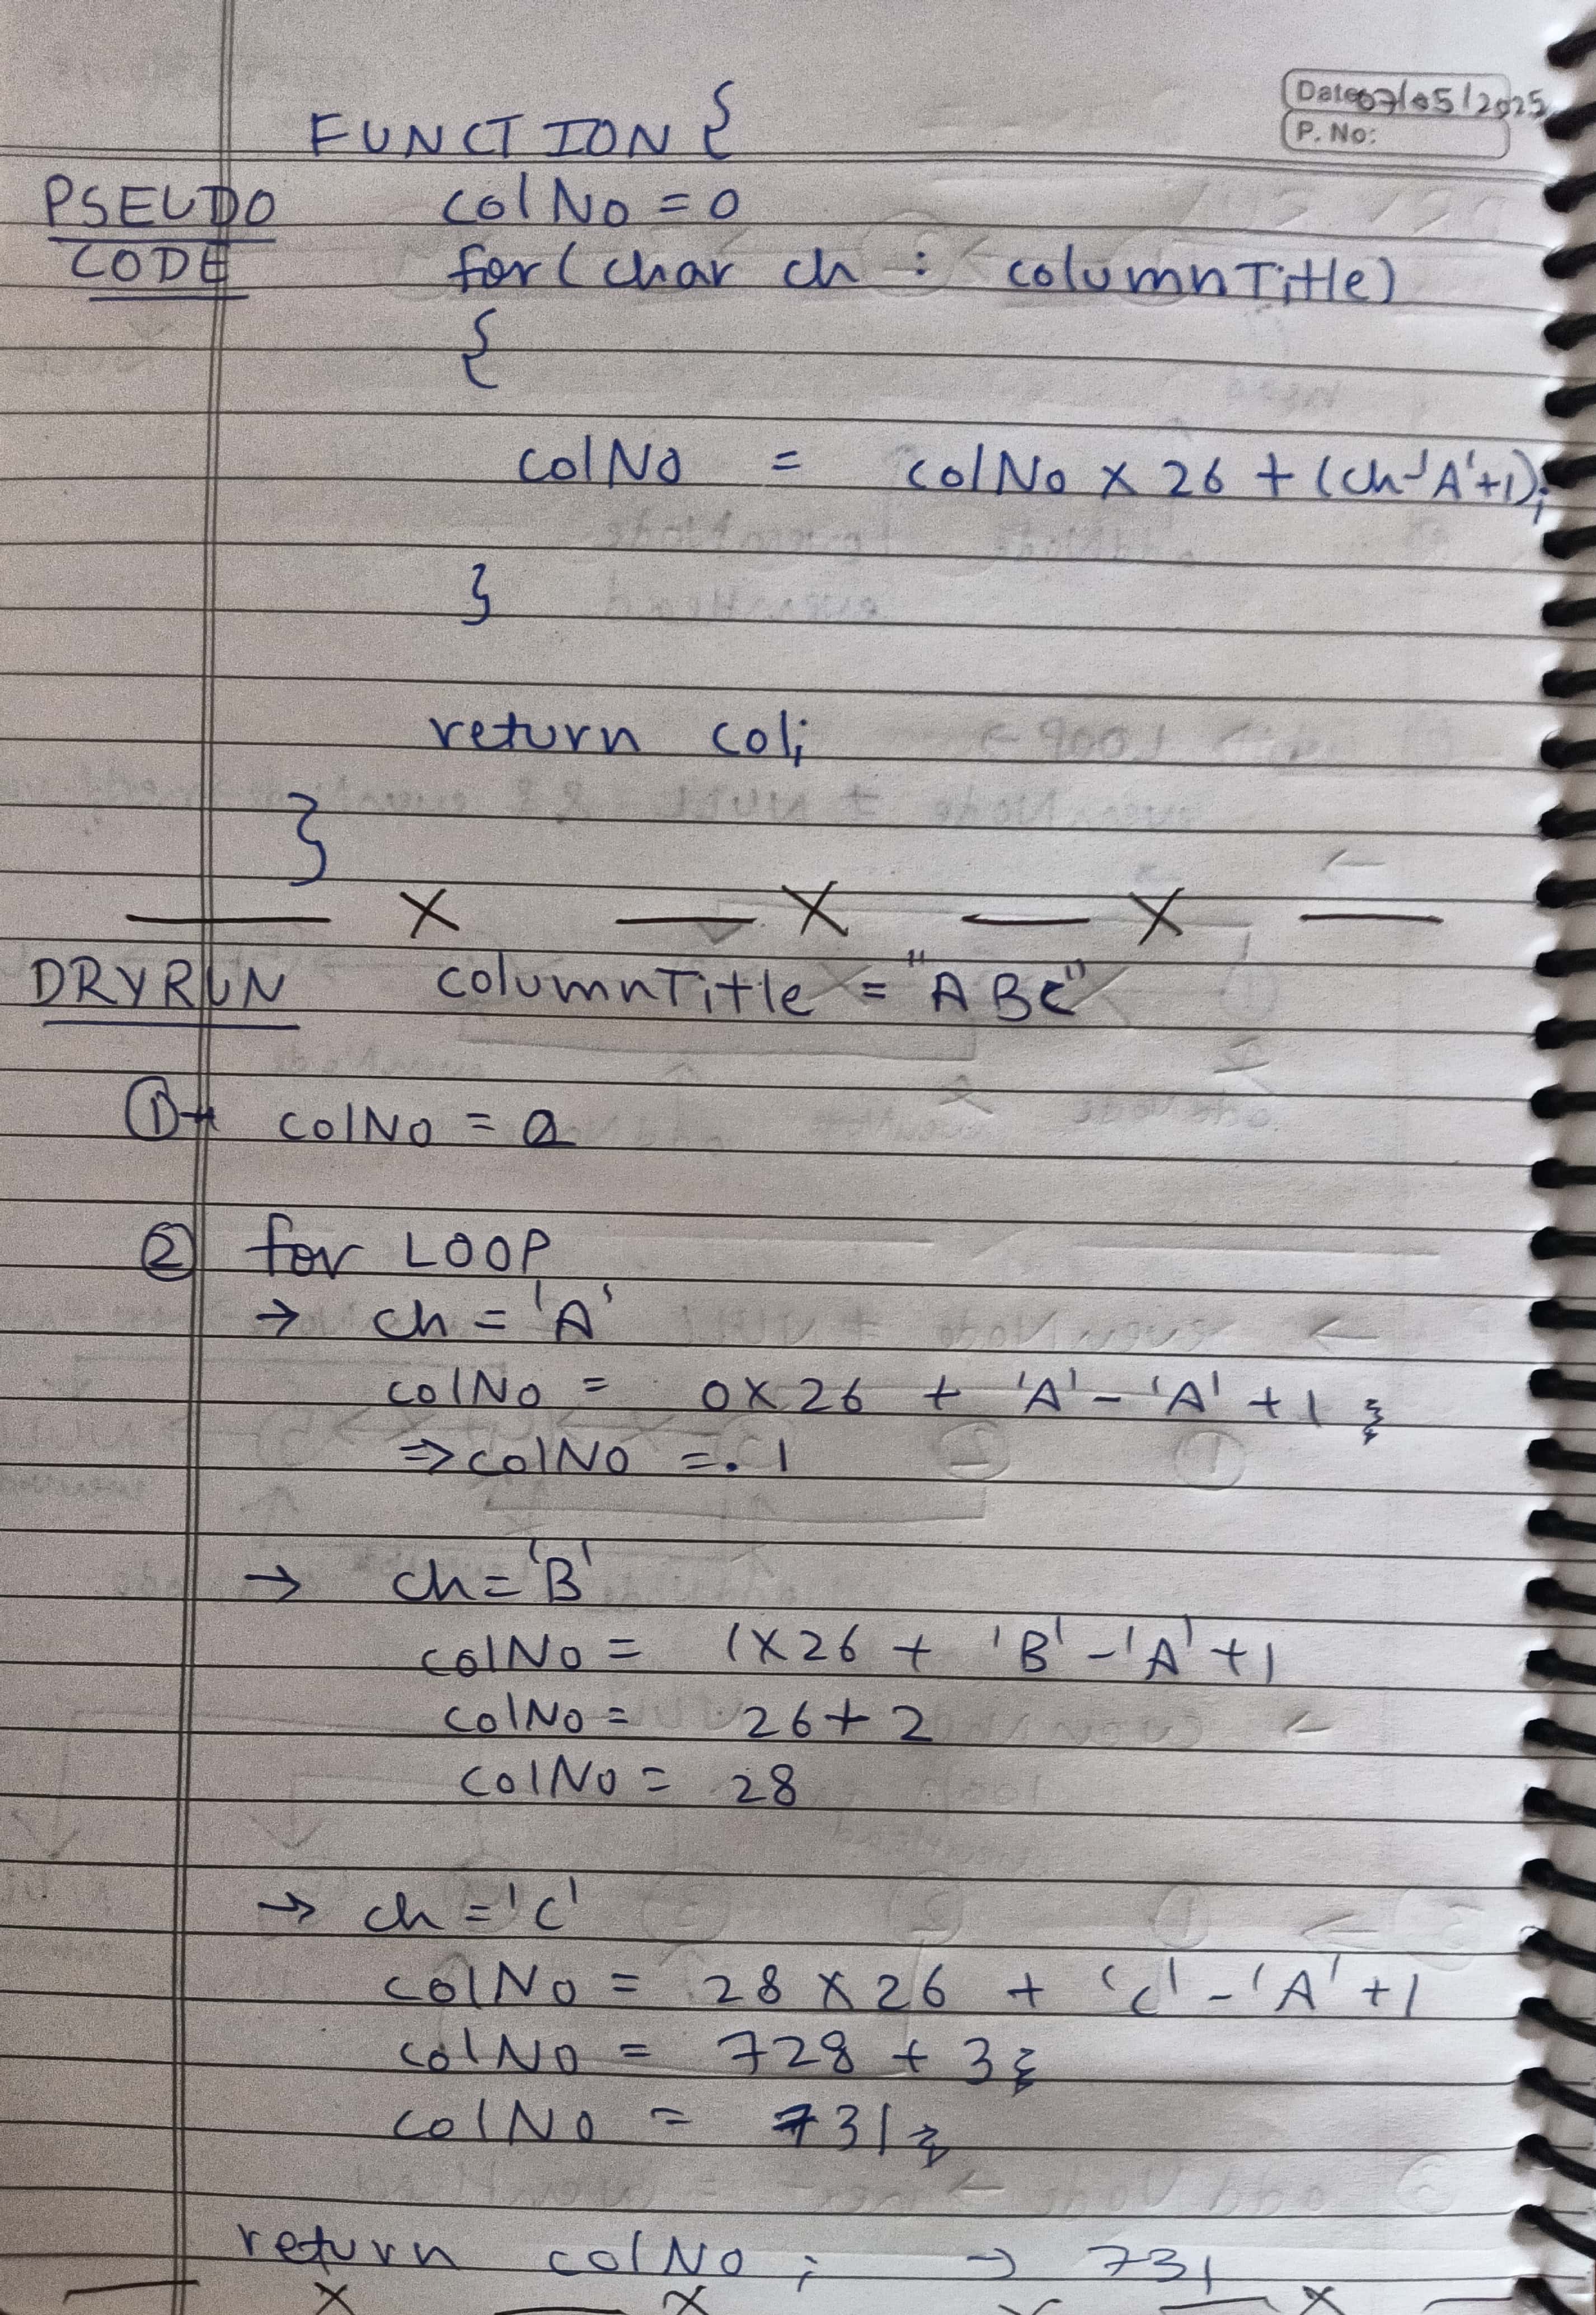 Date: 07/05/2025
P. No:
FUNCTION {
PSEUDO colNo = 0
CODE for (char ch : columnTitle)
{
colNo = colNo x 26 + (ch-'A'+1);
}
return col;
}
— X — X — X —
DRYRUN columnTitle = "ABC"
①→ colNo = 0
② for LOOP
→ ch = 'A'
colNo = 0 x 26 + 'A' - 'A' + 1;
⇒ colNo = 1
→ ch = 'B'
colNo = 1 x 26 + 'B' - 'A' + 1
colNo = 26 + 2
colNo = 28
→ ch = 'C'
colNo = 28 x 26 + 'C' - 'A' + 1
colNo = 728 + 3;
colNo = 731;
return colNo; → 731
— X — X — X —